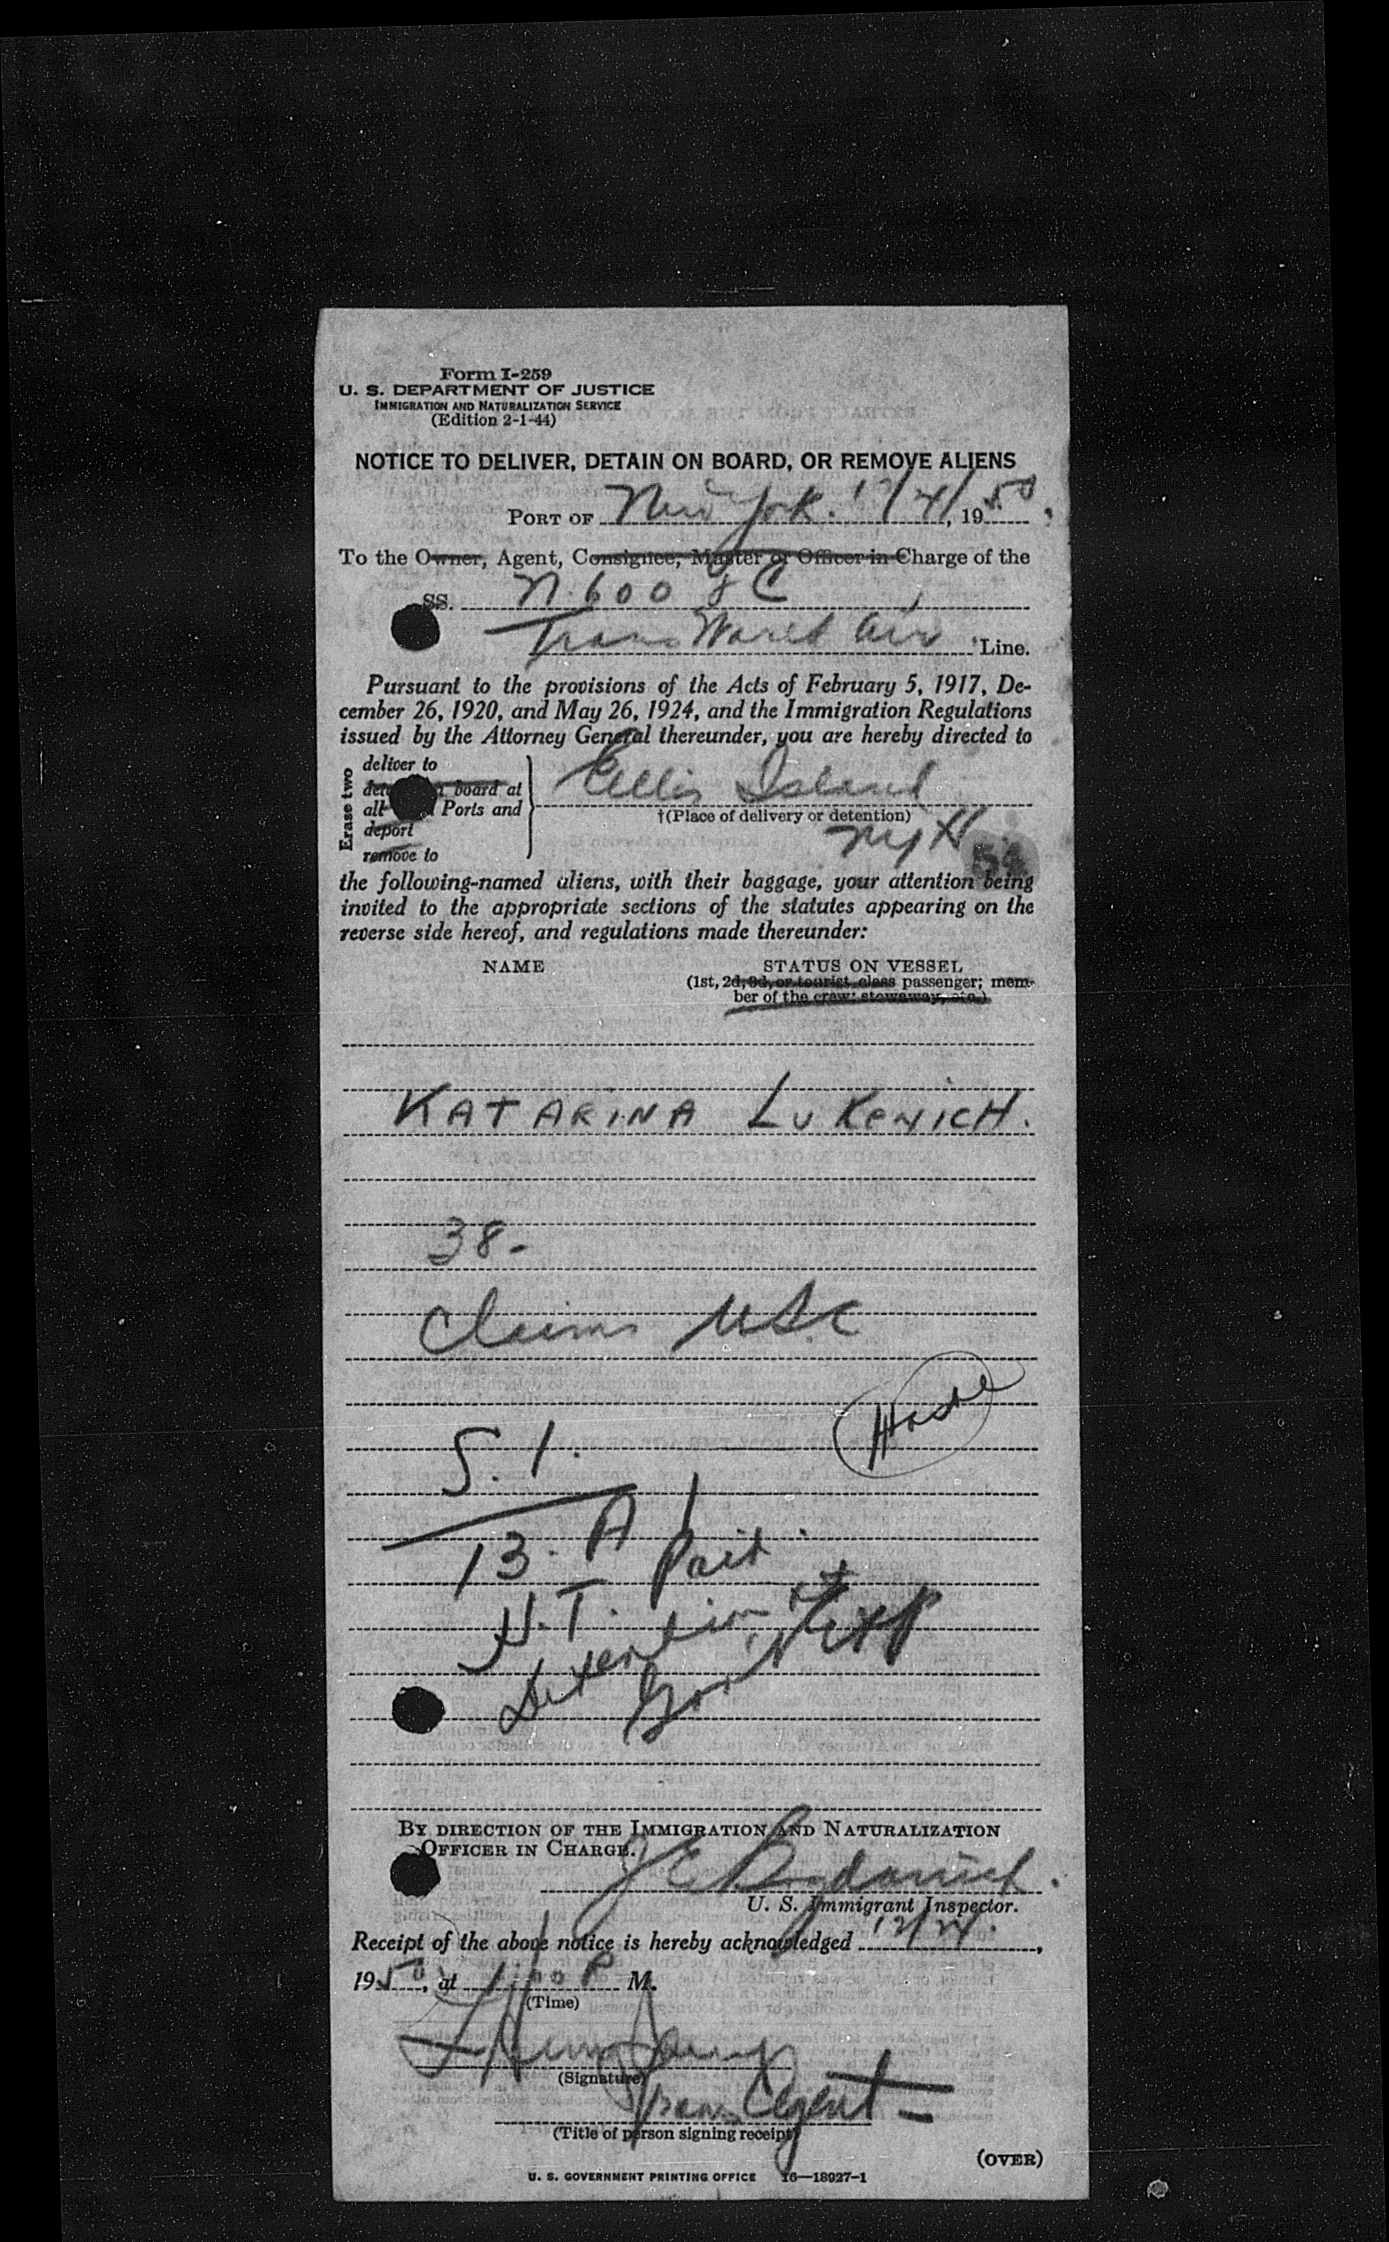 Form I-259
U. S. DEPARTMENT OF JUSTICE
IMMIGRATION AND NATURALIZATION SERVICE
(Edition 2-1-44)
NOTICE TO DELIVER, DETAIN ON BOARD, OR REMOVE ALIENS
PORT OF New York. 12/4/, 1950
To the Owner, Agent, Consignee, Master or Officer in Charge of the
SS. N. 600
Trans World Air Line.
Pursuant to the provisions of the Acts of February 5, 1917, De-
cember 26, 1920, and May 26, 1924, and the Immigration Regulations
issued by the Attorney General thereunder, you are hereby directed to
Erase two
deliver to
board at
all Ports and
deport
remove to
Ellis Island
†(Place of delivery or detention)
NYH
54
the following-named aliens, with their baggage, your attention being
invited to the appropriate sections of the statutes appearing on the
reverse side hereof, and regulations made thereunder:
NAME STATUS ON VESSEL
(1st, 2d, 3d, or tourist class passenger; mem-
ber of the crew; stowaway, etc.)
KATARINA LUKENICH.
38-
Claims USC
S. I.
13. A
H. T. Paid.
Detention
Gov't Exp
BY DIRECTION OF THE IMMIGRATION AND NATURALIZATION
OFFICER IN CHARGE.
J E
U. S. Immigrant Inspector.
Receipt of the above notice is hereby acknowledged 12/24.,
1950, at 1:00 P M.
(Time)
(Signature)
Trans Agent -
(Title of person signing receipt)
(OVER)
U. S. GOVERNMENT PRINTING OFFICE 16—18927-1